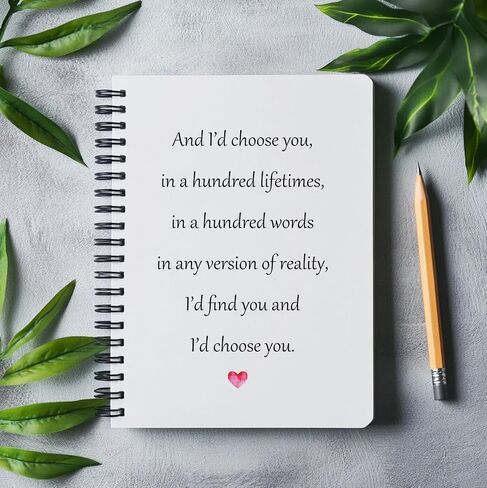 And I'd choose you,
in a hundred lifetimes,
in a hundred words
in any version of reality,
I'd find you and
I'd choose you.